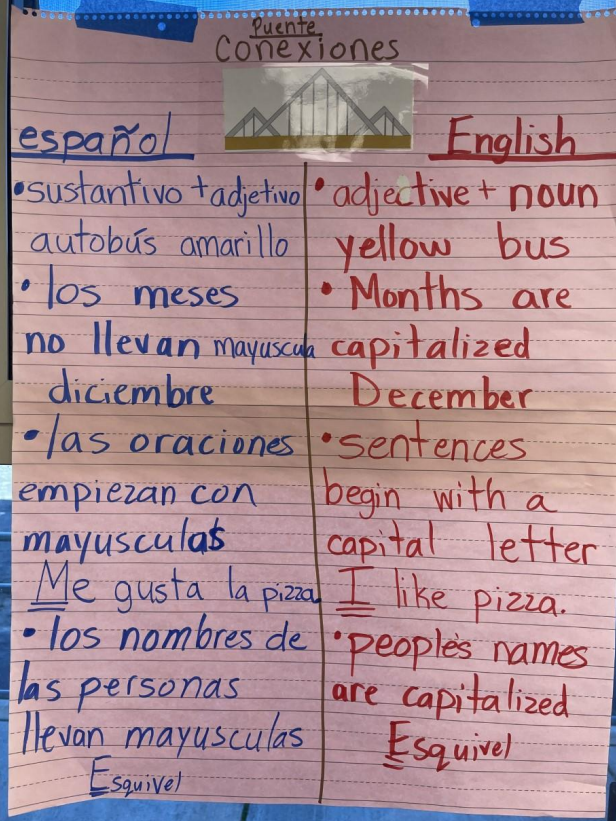 Puente
Conexiones
español
• sustantivo + adjetivo
autobús amarillo
• los meses
no llevan mayuscula
diciembre
• las oraciones
empiezan con
mayusculas
Me gusta la pizza
• los nombres de
las personas
llevan mayusculas
Esquivel
English
• adjective + noun
yellow bus
• Months are
capitalized
December
• sentences
begin with a
capital letter
I like pizza.
• people's names
are capitalized
Esquivel